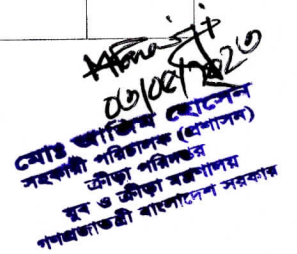 ০৩/০৫/২০২৩
মোঃ আজিম হোসেন
সহকারী পরিচালক (প্রশাসন)
ক্রীড়া পরিদপ্তর
যুব ও ক্রীড়া মন্ত্রণালয়
গণপ্রজাতন্ত্রী বাংলাদেশ সরকার